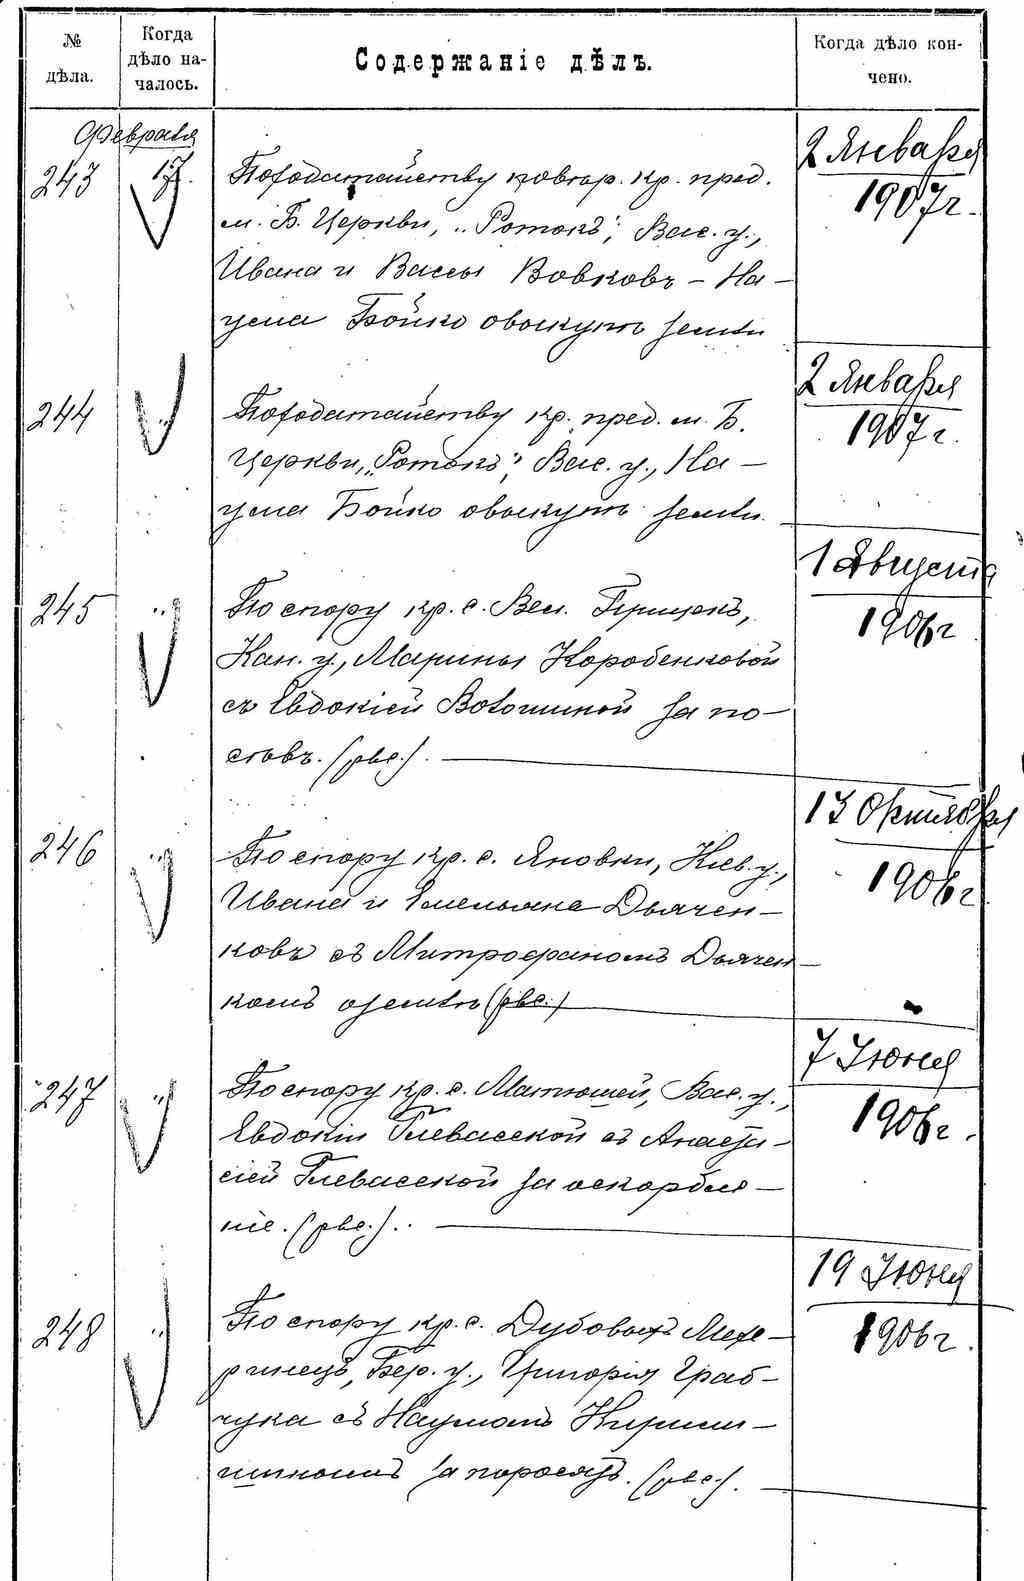 № дѣла.
Когда дѣло на-
чалось.
Содержаніе дѣлъ.
Когда дѣло кон-
чено.
Февраля
243 17. По ходатайству повтор. кр. пред.
м. Б. Церкви, „Ротокъ“, Вас. у.,
Ивана и Вассы Вовковъ – На-
ума Бойко о выкупѣ земли
2 Января
1907 г.
244 „ По ходатайству кр. пред. м. Б.
Церкви, „Ротокъ“, Вас. у., На-
ума Бойко о выкупѣ земли.
2 Января
1907 г.
245 „ По спору кр. с. Вел. Прицекъ,
Кан. у., Марины Коробенковой
съ Евдокіей Волошиной за по-
сѣвъ. (рвс.).
1 Августа
1906 г
246 „ По спору кр. с. Яновки, Кіев. у.,
Ивана и Емельяна Дьячен-
ковъ съ Митрофаномъ Дьячен-
комъ о землѣ (рвс.)
13 Октября
1906 г
247 „ По спору кр. с. Матюшей, Вас. у.,
Евдокіи Глевасской съ Анаста-
сіей Глевасской за оскорбле-
ніе. (рвс.)..
7 Іюня
1906 г.
248 „ По спору кр. с. Дубовыхъ Меже-
ринецъ, Бер. у., Григорія Граб-
чука съ Наумомъ
за поросятъ. (рвс.).
19 Іюня
1906 г.